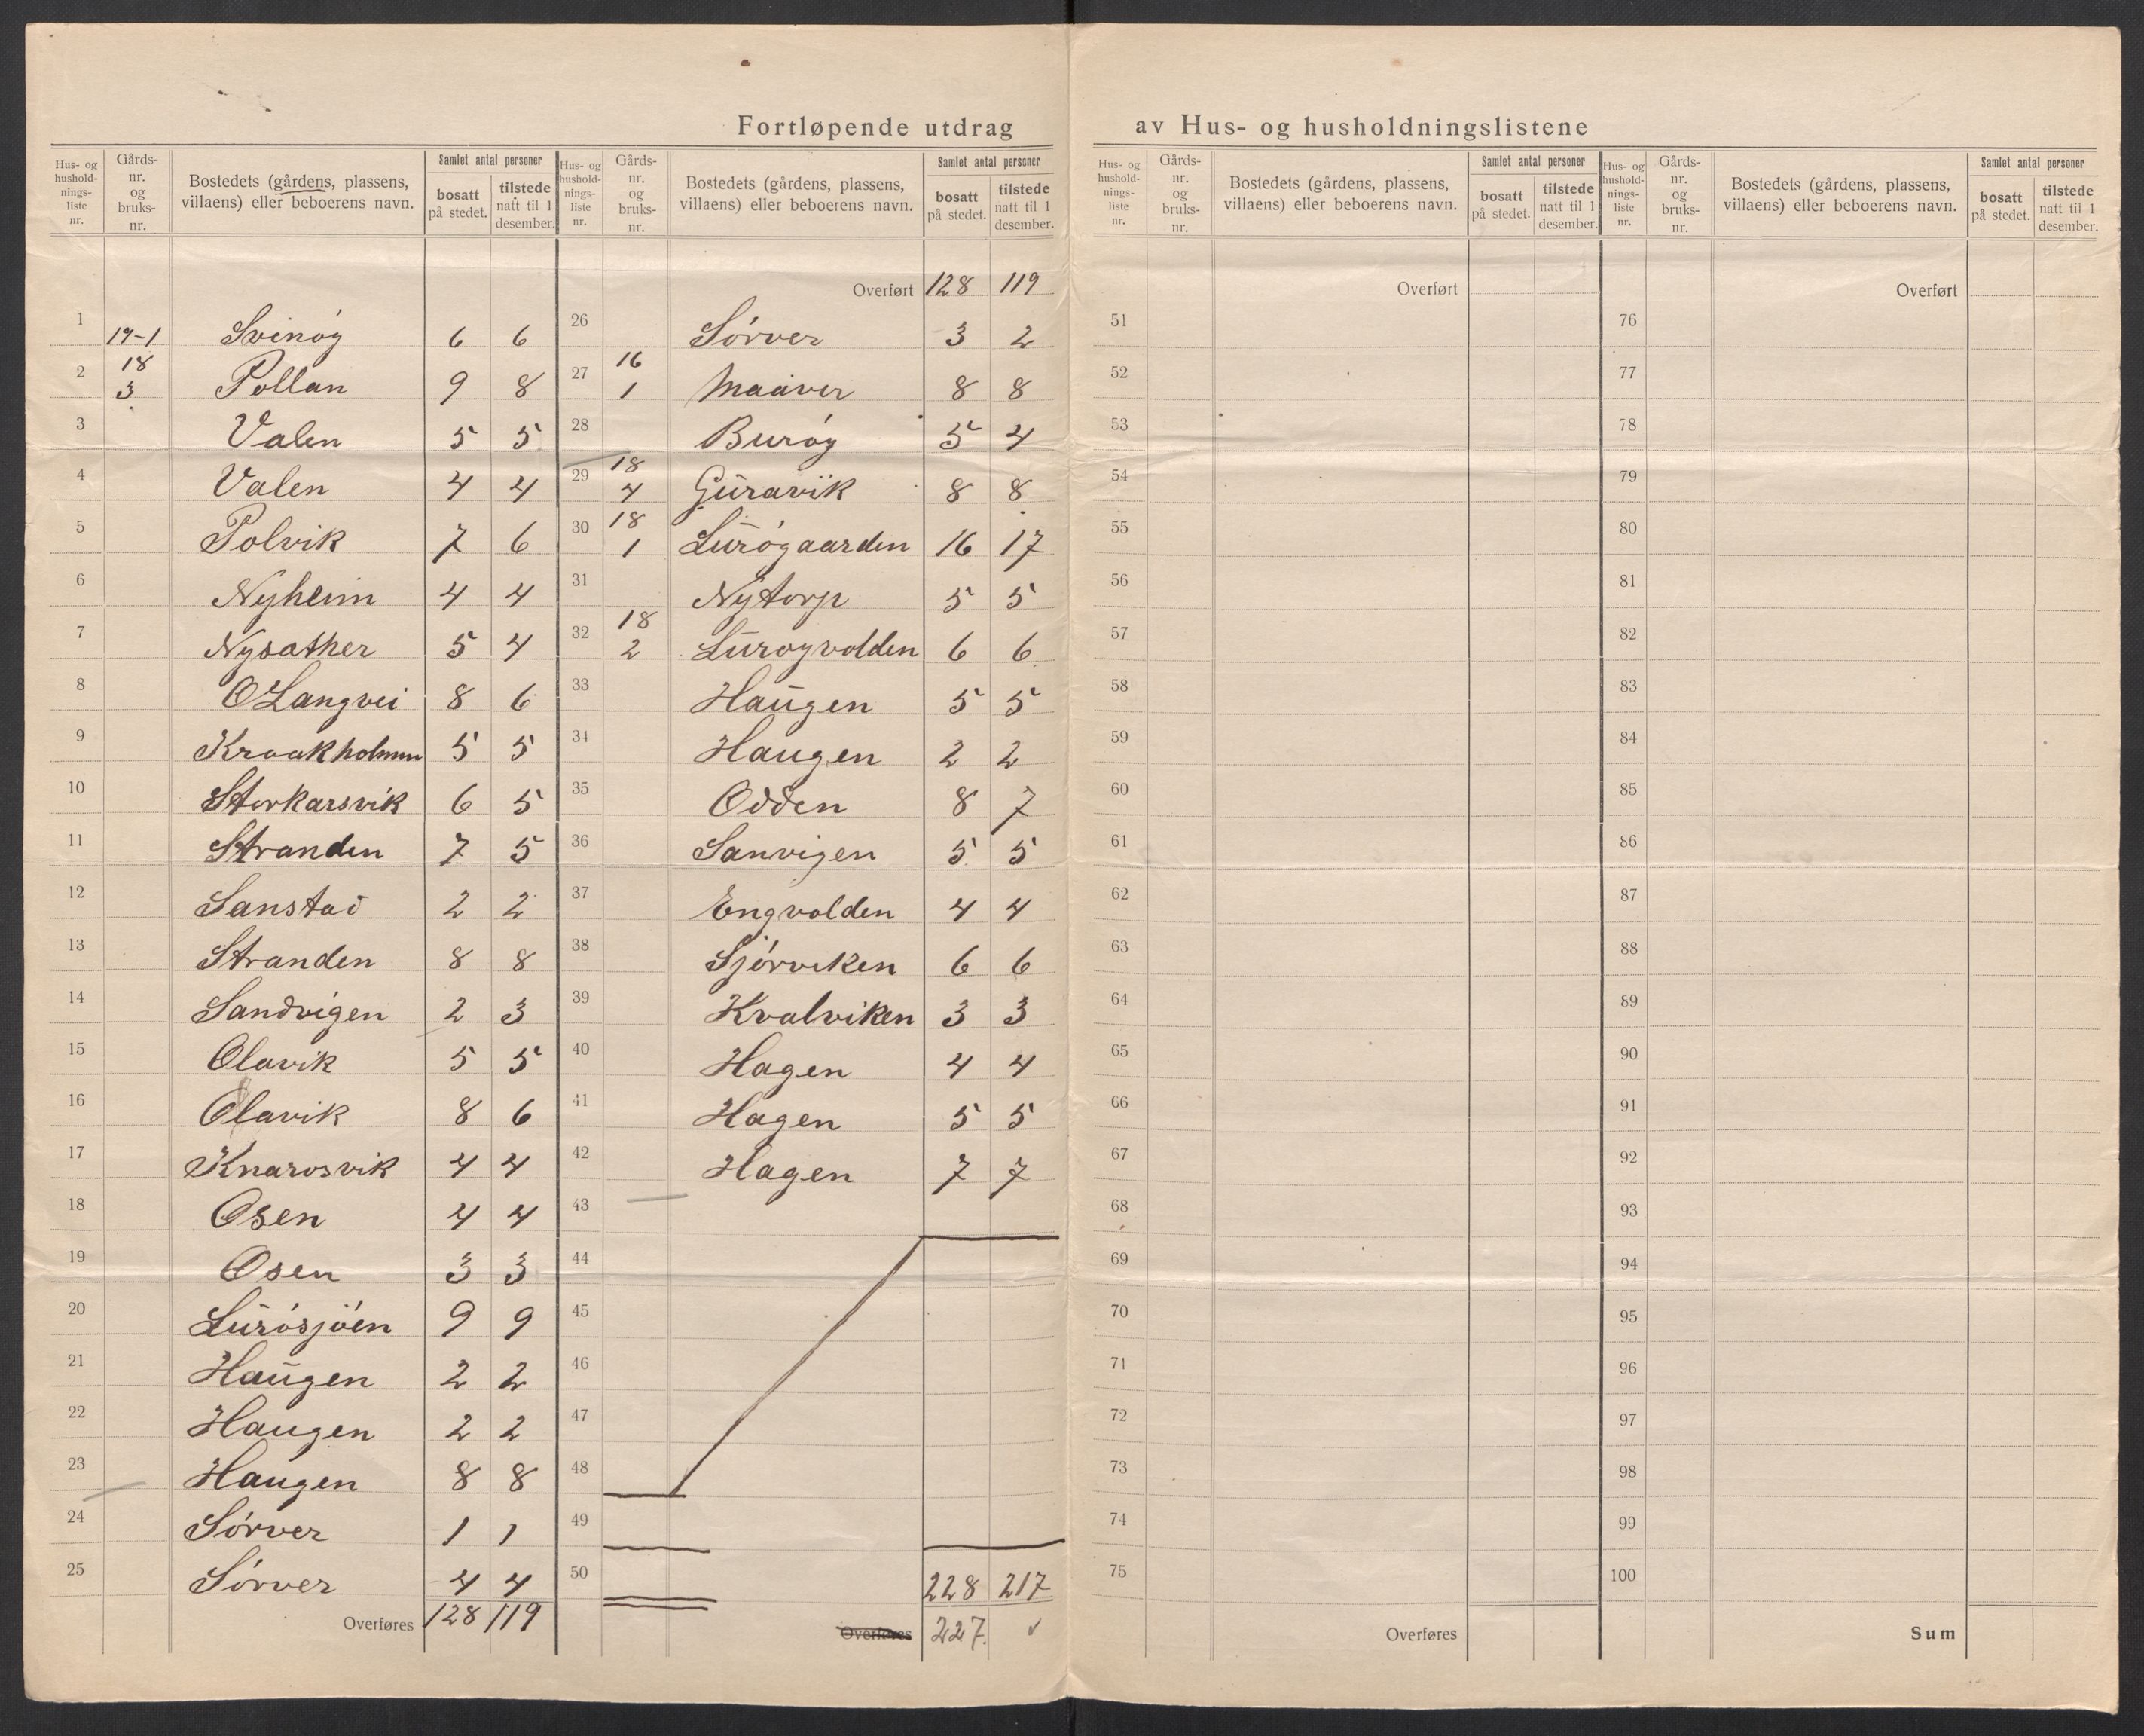 Fortløpende utdrag av Hus- og husholdningslistene
Hus- og hushold-nings-liste nr. | Gårds-nr. og bruks-nr. | Bostedets (gårdens, plassens, villaens) eller beboerens navn. | Samlet antal personer | bosatt på stedet. | tilstede natt til 1 desember.
1 | 17-1 | Svinøy | 6 | 6
2 | 18 3 | Pollan | 9 | 8
3 | Valen | 5 | 5
4 | Valen | 4 | 4
5 | Polvik | 7 | 6
6 | Nyheim | 4 | 4
7 | Nysæther | 5 | 4
8 | O Langvei | 8 | 6
9 | Kraakholmen | 5 | 5
10 | Storkarsvik | 6 | 5
11 | Stranden | 7 | 5
12 | Sanstad | 2 | 2
13 | Stranden | 8 | 8
14 | Sandvigen | 2 | 3
15 | Olavik | 5 | 5
16 | Olavik | 8 | 6
17 | Knarosvik | 4 | 4
18 | Osen | 4 | 4
19 | Osen | 3 | 3
20 | Lurøsjøen | 9 | 9
21 | Haugen | 2 | 2
22 | Haugen | 2 | 2
23 | Haugen | 8 | 8
24 | Sørver | 1 | 1
25 | Sørver | 4 | 4
Overføres | 128 | 119
Hus- og hushold-nings-liste nr. | Gårds-nr. og bruks-nr. | Bostedets (gårdens, plassens, villaens) eller beboerens navn. | Samlet antal personer | bosatt på stedet. | tilstede natt til 1 desember.
Overført | 128 | 119
26 | Sørver | 3 | 2
27 | 16 1 | Maaver | 8 | 8
28 | Burøy | 5 | 4
29 | 18 4 | Guravik | 8 | 8
30 | 18 1 | Lurøgaarden | 16 | 17
31 | Nytorp | 5 | 5
32 | 18 2 | Lurøyvolden | 6 | 6
33 | Haugen | 5 | 5
34 | Haugen | 2 | 2
35 | Odden | 8 | 7
36 | Sanvigen | 5 | 5
37 | Engvolden | 4 | 4
38 | Sjørviken | 6 | 6
39 | Kvalviken | 3 | 3
40 | Hagen | 4 | 4
41 | Hagen | 5 | 5
42 | Hagen | 7 | 7
43
44
45
46
47
48
49
50 | 228 | 217
Overføres | 227. | ✓
Hus- og hushold-nings-liste nr. | Gårds-nr. og bruks-nr. | Bostedets (gårdens, plassens, villaens) eller beboerens navn. | Samlet antal personer | bosatt på stedet. | tilstede natt til 1 desember.
Overført
51
52
53
54
55
56
57
58
59
60
61
62
63
64
65
66
67
68
69
70
71
72
73
74
75
Overføres
Hus- og hushold-nings-liste nr. | Gårds-nr. og bruks-nr. | Bostedets (gårdens, plassens, villaens) eller beboerens navn. | Samlet antal personer | bosatt på stedet. | tilstede natt til 1 desember.
Overført
76
77
78
79
80
81
82
83
84
85
86
87
88
89
90
91
92
93
94
95
96
97
98
99
100
Sum